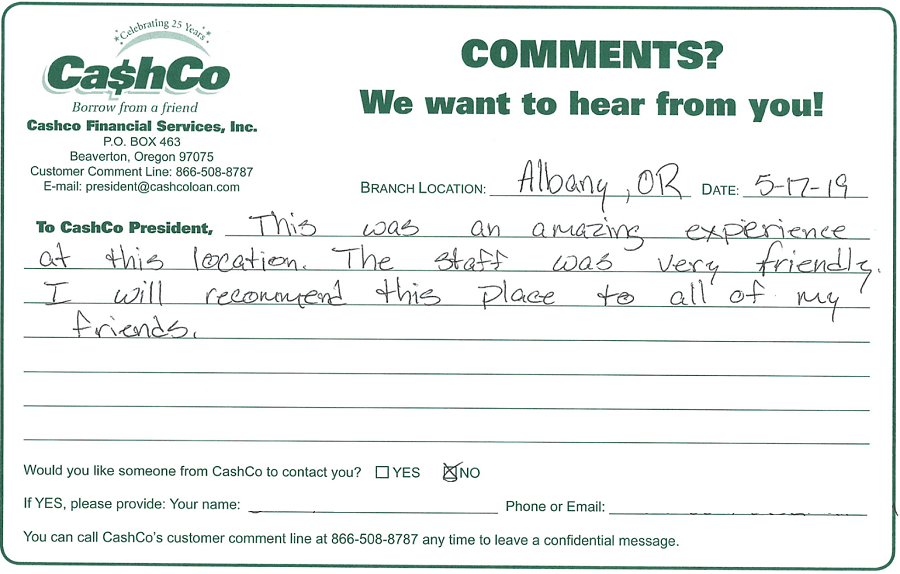 Celebrating 25 Years
Ca$hCo
Borrow from a friend
Cashco Financial Services, Inc.
P.O. BOX 463
Beaverton, Oregon 97075
Customer Comment Line: 866-508-8787
E-mail: president@cashcoloan.com
COMMENTS?
We want to hear from you!
BRANCH LOCATION: Albany, OR DATE: 5-17-19
To CashCo President, This was an amazing experience
at this location. The staff was very friendly.
I will recommend this place to all of my
friends.
Would you like someone from CashCo to contact you? ☐ YES ☒ NO
If YES, please provide: Your name: Phone or Email:
You can call CashCo's customer comment line at 866-508-8787 any time to leave a confidential message.